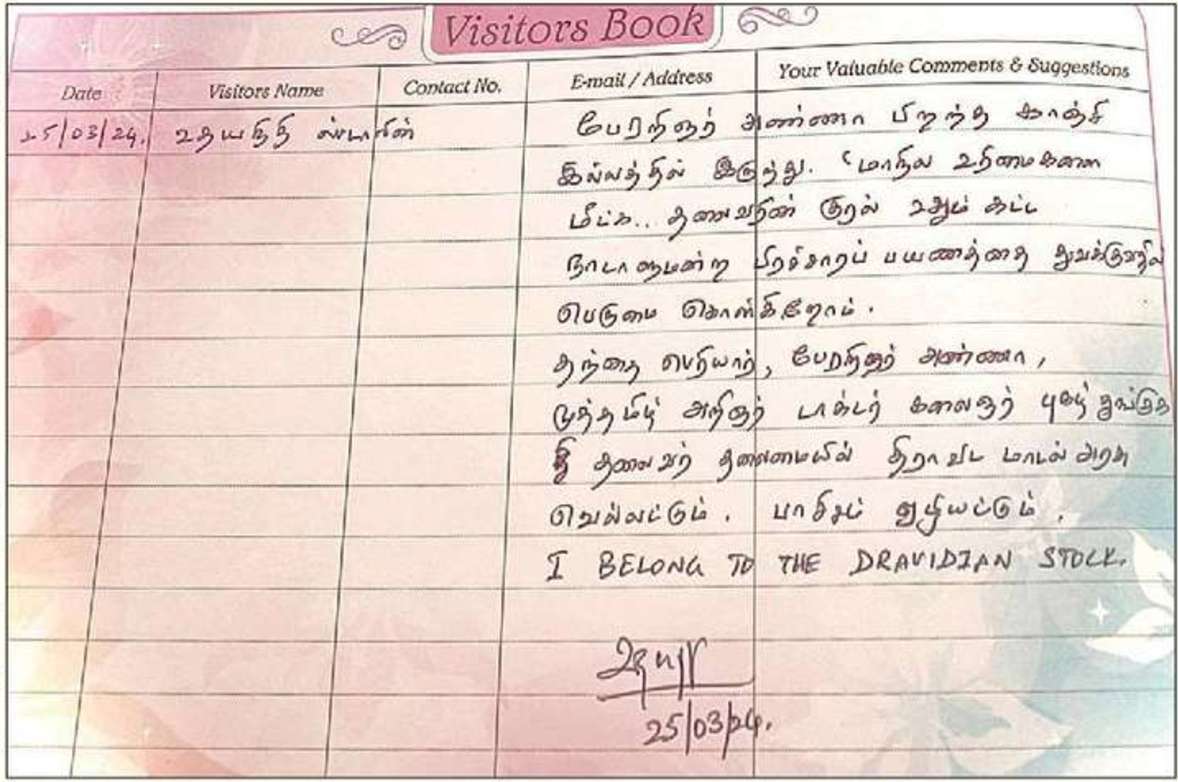 Visitors Book
Date Visitors Name Contact No. E-mail / Address Your Valuable Comments & Suggestions
25/03/24. உதயநிதி ஸ்டாலின் பேரறிஞர் அண்ணா பிறந்த காஞ்சி
இல்லத்தில் இருந்து. 'மாநில உரிமைகளை
மீட்க.. தலைவரின் குரல்
நாடாளுமன்ற பிரச்சாரப் பயணத்தை துவக்குவதில்
பெருமை கொள்கிறோம்.
தந்தை பெரியார், பேரறிஞர் அண்ணா,
முத்தமிழ் அறிஞர் டாக்டர் கலைஞர் புகழ்
தலைவர் தலைமையில் திராவிட மாடல் அரசு
வெல்லட்டும். பாசிசம் ஒழியட்டும்.
I BELONG TO THE DRAVIDIAN STOCK.
25/03/24.